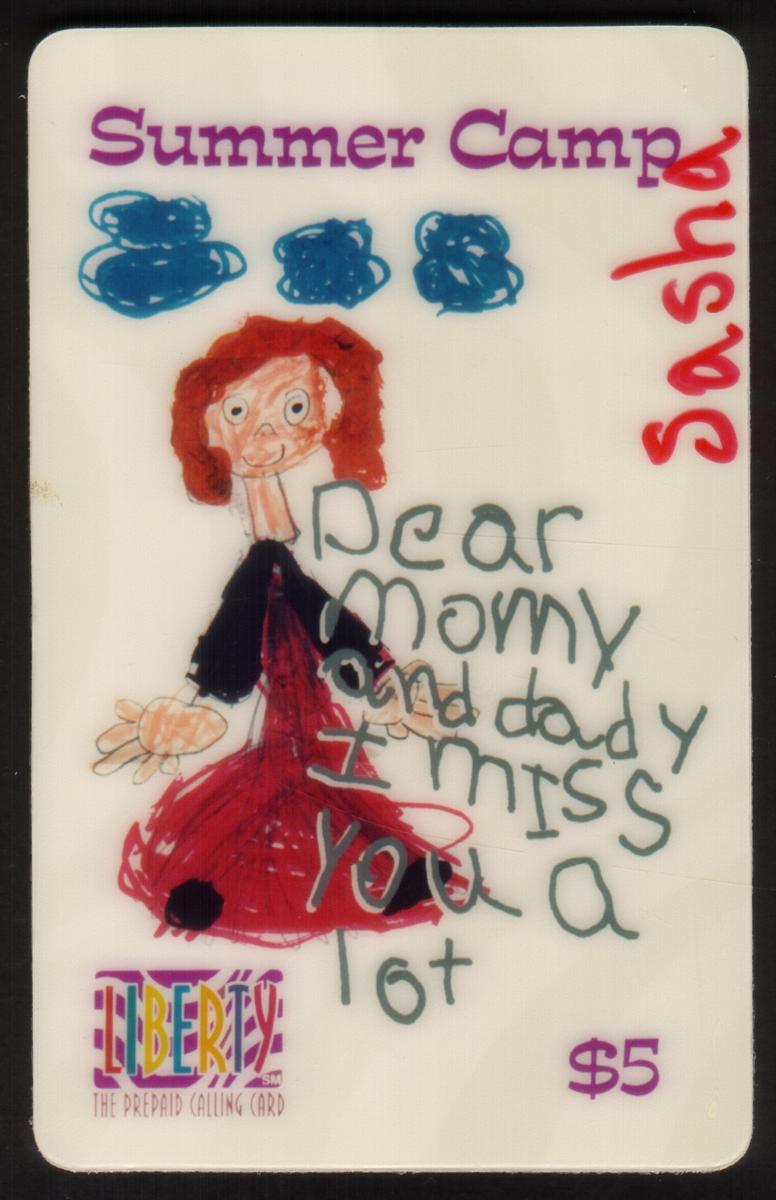 Summer Camp
Sasha
Dear
Momy
and dady
I mISS
you a
lot
LIBERTY SM
THE PREPAID CALLING CARD
$5